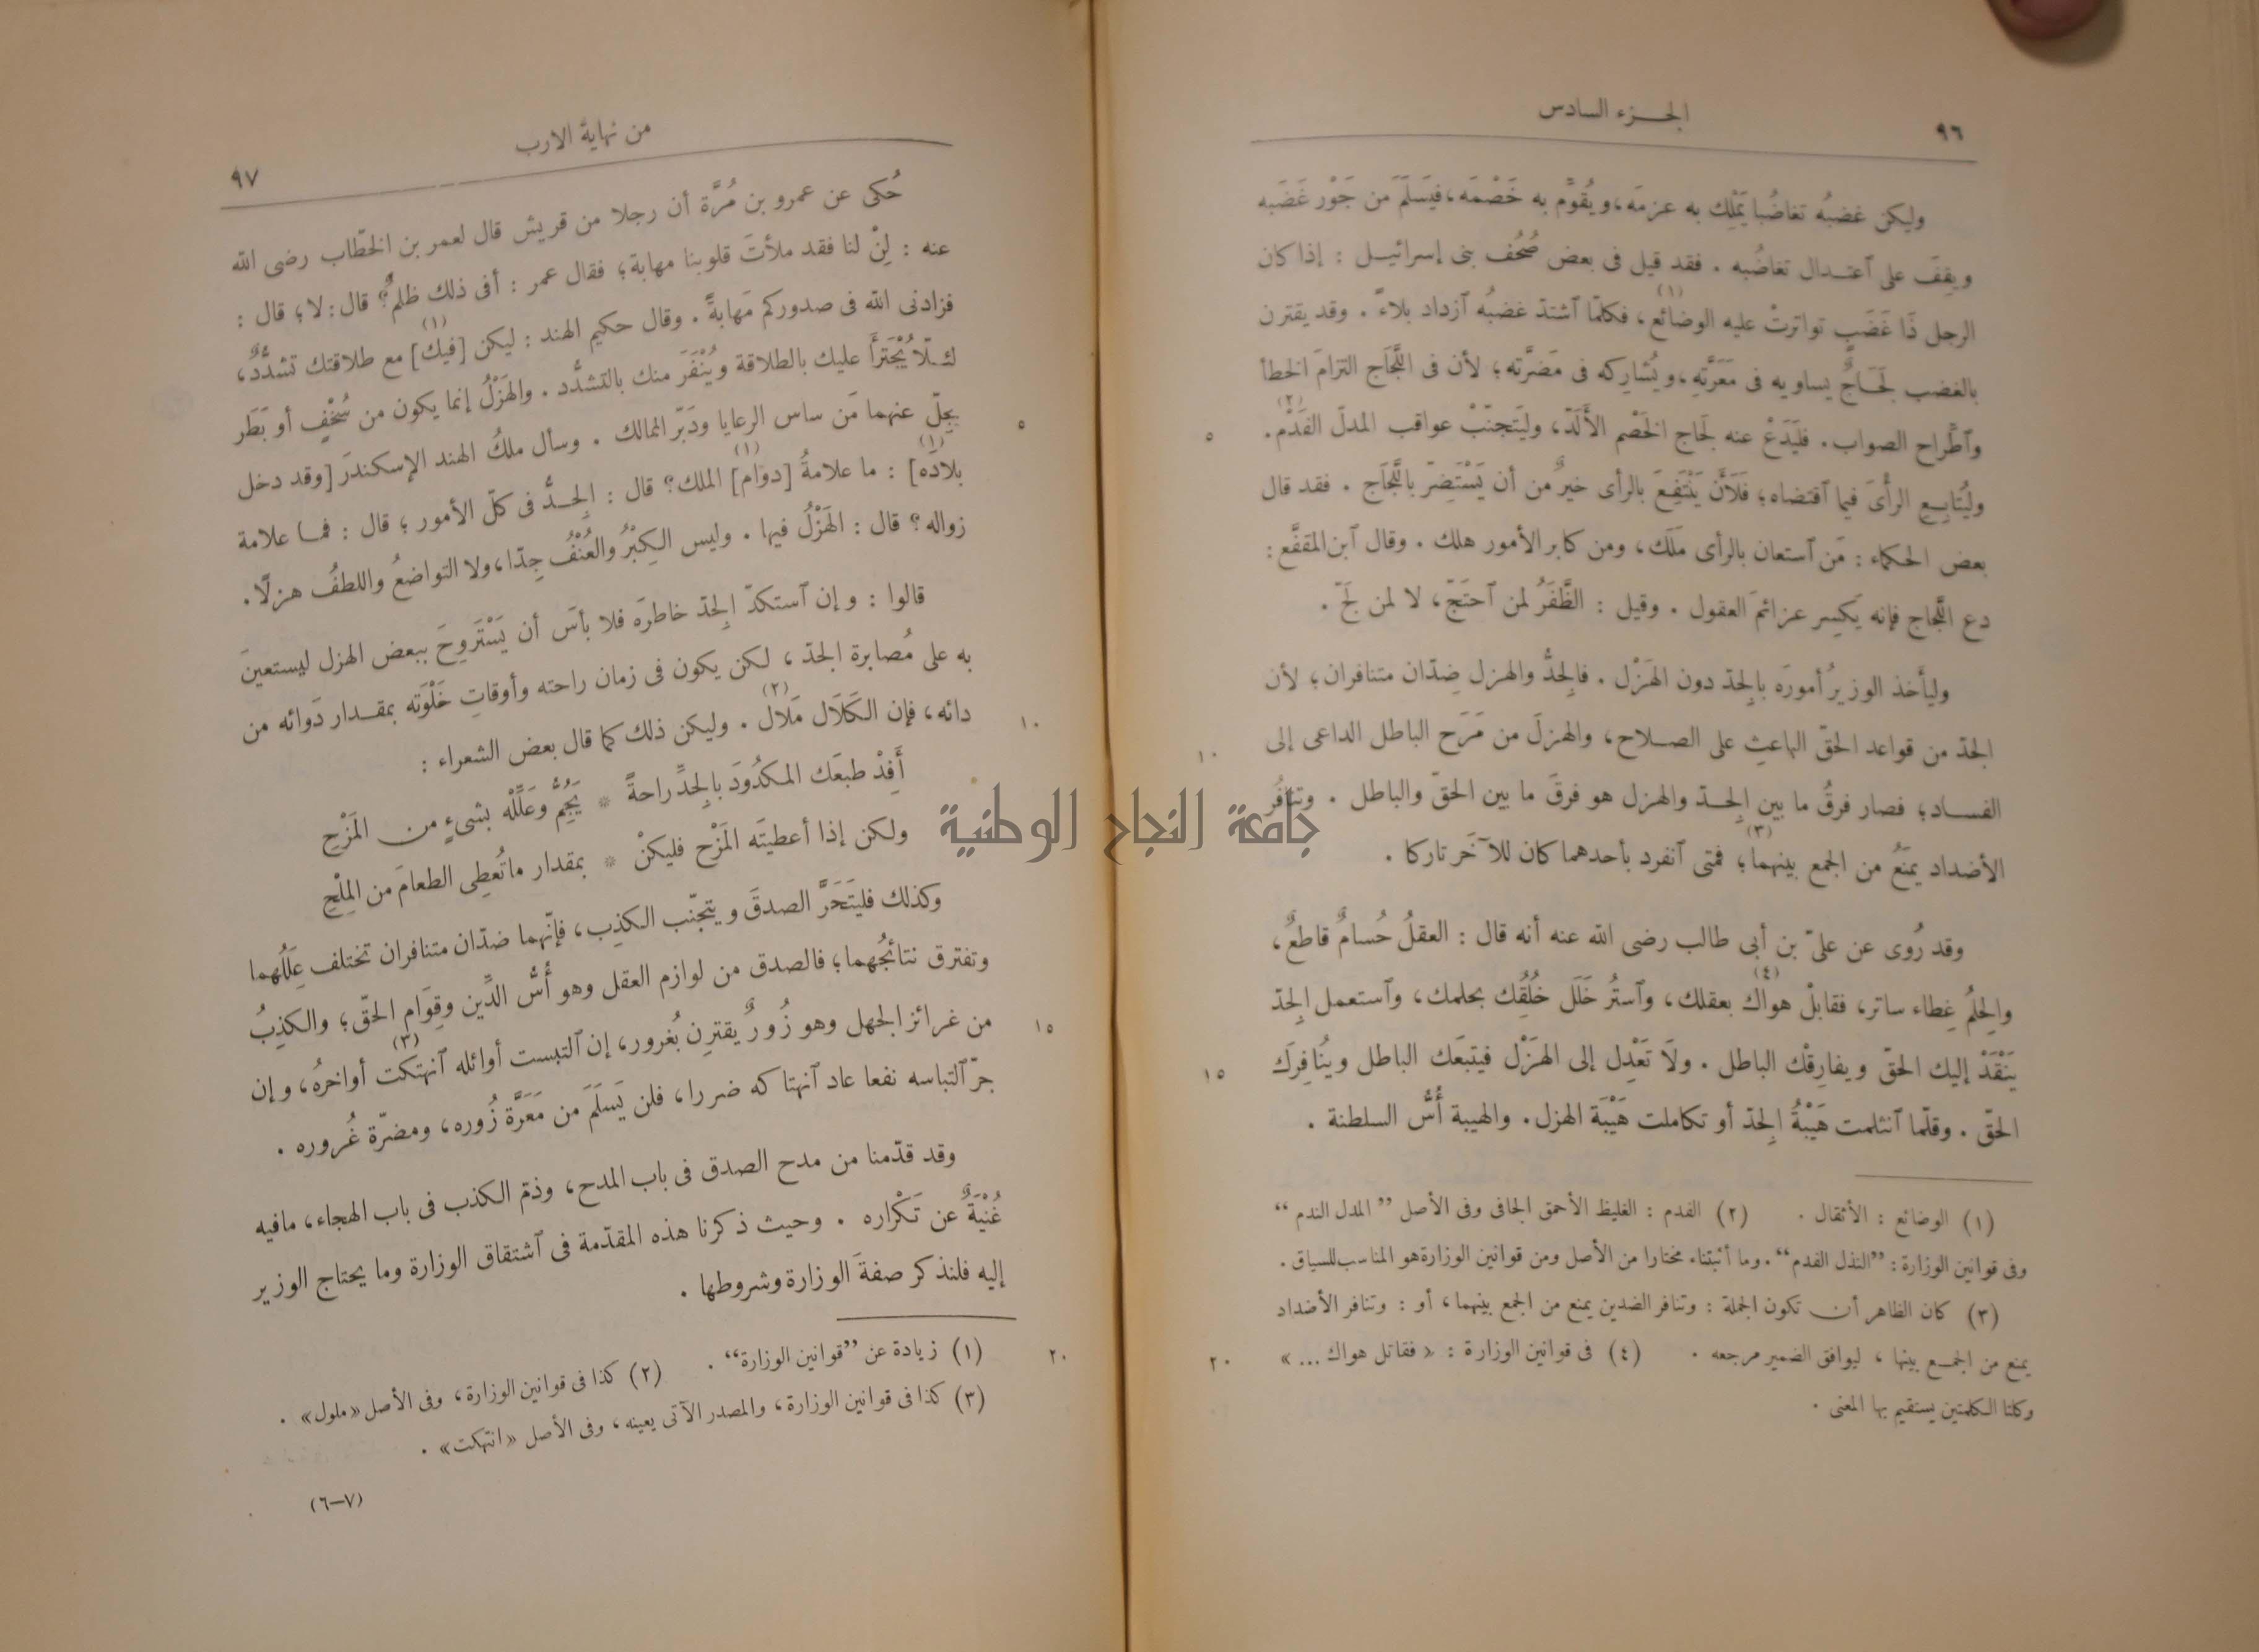 ٩٦
الجـزء السادس
وليكن غضبُه تغاضُبا يَمْلِك به عزمَه، ويُقوّم به خَصْمَه، فيَسلَمَ من جَوْر غَضَبه
ويقِفَ على ٱعتـدال تغاضُبه . فقد قيل فى بعض صُحُف بنى إسرائيـل : إذا كان
الرجل ذَا غَضَبٍ تواترتْ عليه الوضائع(١)، فكلّما ٱشتدّ غضبُه ٱزداد بلاءً . وقد يقترن
بالغضب لَجَـاجٌ يساويه فى مَعَرّته، ويُشارِكه فى مَضَرَّته؛ لأن فى اللَّجَاج التزامَ الخطأ
وٱطّراح الصواب . فليَدَعْ عنه لَجَاج الخَصْم الأَلَدّ، وليَتجنّبْ عواقب المدلّ الفَدْم(٢).
وليُتابِـعِ الرأىَ فيما ٱقتضاه؛ فَلَأَنْ يَنْتَفِـعَ بالرأى خيرٌ من أن يَسْتَضِرّ باللَّجَاج . فقد قال
بعض الحكماء : مَن ٱستعان بالرأى مَلَك، ومن كابر الأمور هلك . وقال ٱبن المقفَّع :
دع اللَّجاج فإنه يَكسِر عزائمَ العقول . وقيل : الظَّفَرُ لمن ٱحتَجّ، لا لمن لَجّ .
وليأخذ الوزيرُ أمورَه بالِجدّ دون الهَزْل . فالِجدُّ والهزل ضِدّان متنافران؛ لأن
الجدّ من قواعد الحقّ الباعثِ على الصـلاح، والهزلَ من مَرَح الباطل الداعى إلى
الفسـاد؛ فصار فرقُ ما بين الِجـدّ والهزل هو فرقَ ما بين الحقّ والباطل . وتنافُر
الأضداد يمنَعُ من الجمع بينهما(٣)؛ فمتى ٱنفرد بأحدهما كان للآخَر تاركا .
وقد رُوى عن علىّ بن أبى طالب رضى الله عنه أنه قال : العقلُ حُسامٌ قاطعٌ،
والِحلمُ غِطاء ساتر، فقابلْ هواك(٤) بعقلك، وٱستُر خَلَل خُلُقِك بحلمك، وٱستعمل الِجدّ
يَنْقَدْ إليك الحقّ ويفارِقْك الباطل . ولَا تَعْدِل إلى الهَزْل فيتبعَك الباطل ويُنافِرَك
الحقّ . وقلّما ٱنثلمت هَيْبَةُ الِجدّ أو تكاملت هَيْبَة الهزل. والهيبة أُسُّ السلطنة .
(١) الوضائع : الأثقال . (٢) الفدم : الغليظ الأحمق الجافى وفى الأصل ”المدل الندم“
وفى قوانين الوزارة: ”النذل الفدم“. وما أثبتناه مختارا من الأصل ومن قوانين الوزارة هو المناسب للسياق .
(٣) كان الظاهر أن تكون الجملة : وتنافر الضدين يمنع من الجمع بينهما، أو : وتنافر الأضداد
يمنع من الجمـع بينها ، ليوافق الضمير مرجعه . (٤) فى قوانين الوزارة : « فقاتل هواك ... »
وكلتا الكلمتين يستقيم بها المعنى .
من نهاية الارب
٩٧
حُكى عن عمرو بن مُرّة أن رجلا من قريش قال لعمر بن الخطّاب رضى الله
عنه : لِنْ لنا فقد ملأتَ قلوبنا مهابة؛ فقال عمر : أفى ذلك ظلمٌ؟ قال: لا؛ قال :
فزادنى الله فى صدوركم مَهابةً . وقال حكيم الهند : ليكن [فيك](١) مع طلاقتك تشدُّدٌ،
لئـلّا يُجْتَرَأَ عليك بالطلاقة ويُنْفَرَ منك بالتشدُّد . والهَزْلُ إنما يكون من سُخْفٍ أو بَطَر
يجِلّ عنهما مَن ساس الرعايا ودَبّر الممالك . وسأل ملكُ الهند الإسكندرَ [وقد دخل
بلاده](١) : ما علامةُ [دوَام](١) الملك؟ قال : الِجـدُّ فى كلّ الأمور ؛ قال : فمـا علامة
زواله؟ قال : الهَزْلُ فيها . وليس الكِبْرُ والعُنْفُ جِدّا، ولا التواضعُ واللطفُ هزلًا .
قالوا : وإن ٱستكدّ الِجدّ خاطرَه فلا بأسَ أن يَسْتَروِحَ ببعض الهزل ليستعينَ
به على مُصابرة الجدّ ، لكن يكون فى زمان راحته وأوقاتِ خَلْوَته بمقـدار دَوائه من
دائه، فإن الكَلَال مَلَال(٢) . وليكن ذلك كما قال بعض الشعراء :
أَفِدْ طبعَك المكدُودَ بالِجدِّ راحةً * يَجُمُّ وعَلِّلْه بشىءٍ من المَزْحِ
ولكن إذا أعطيتَه المَزْح فليكنْ * بمقدار ما تُعطِى الطعامَ من المِلْحِ
وكذلك فليَتَحَرَّ الصدقَ ويتجنّب الكذِب، فإنّهما ضدّان متنافران تختلف عِلَلُهما
وتفترق نتائجُهما؛ فالصدق من لوازم العقل وهو أُسُّ الدِّين وقِوَام الحقّ؛ والكذِبُ
من غرائز الجهل وهو زُورٌ يقترِن بُغرور، إن ٱلتبست أوائله ٱنهتكت(٣) أواخرهُ، وإن
جرّ ٱلتباسه نفعا عاد ٱنهتاكه ضررا، فلن يَسلَمَ من مَعَرَّة زُوره، ومضرّة غُروره .
وقد قدّمنا من مدح الصدق فى باب المدح، وذمّ الكذب فى باب الهجاء، مافيه
غُنْيَةٌ عن تَكْراره . وحيث ذكرنا هذه المقدّمة فى ٱشتقاق الوزارة وما يحتاج الوزير
إليه فلنذكر صفةَ الوزارة وشروطها .
(١) زيادة عن ”قوانين الوزارة“ . (٢) كذا فى قوانين الوزارة، وفى الأصل «ملول» .
(٣) كذا فى قوانين الوزارة، والمصدر الآتى يعينه ، وفى الأصل «انتهكت» .
(٧-٦)
٥
١٠
١٥
٢٠
٥
١٠
١٥
٢٠
جامعة النجاح الوطنية